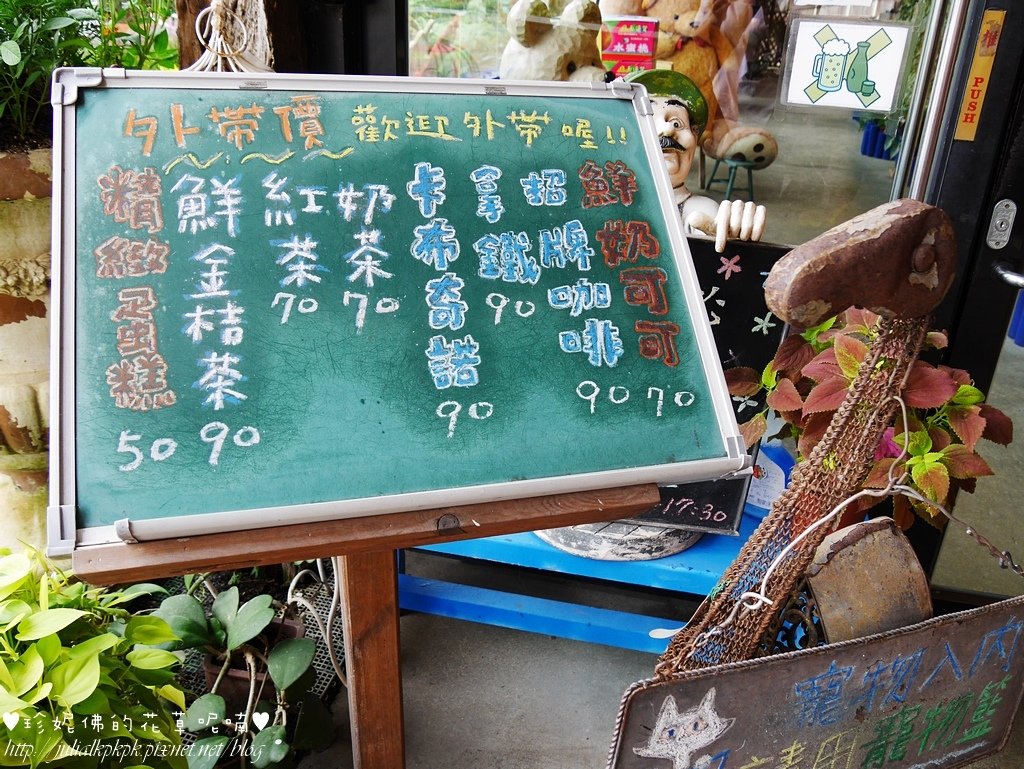 外帶價 歡迎外帶喔!!
鮮奶可可 70
招牌咖啡 90
拿鐵 90
卡布奇諾 90
奶茶 70
紅茶 70
鮮金桔茶 90
精緻蛋糕 50
水蜜桃
推
PUSH
17:30
寵物入內
寵物籃
♥珍妮佛的花草呢喃♥
http://julialkpkpk.pixnet.net/blog